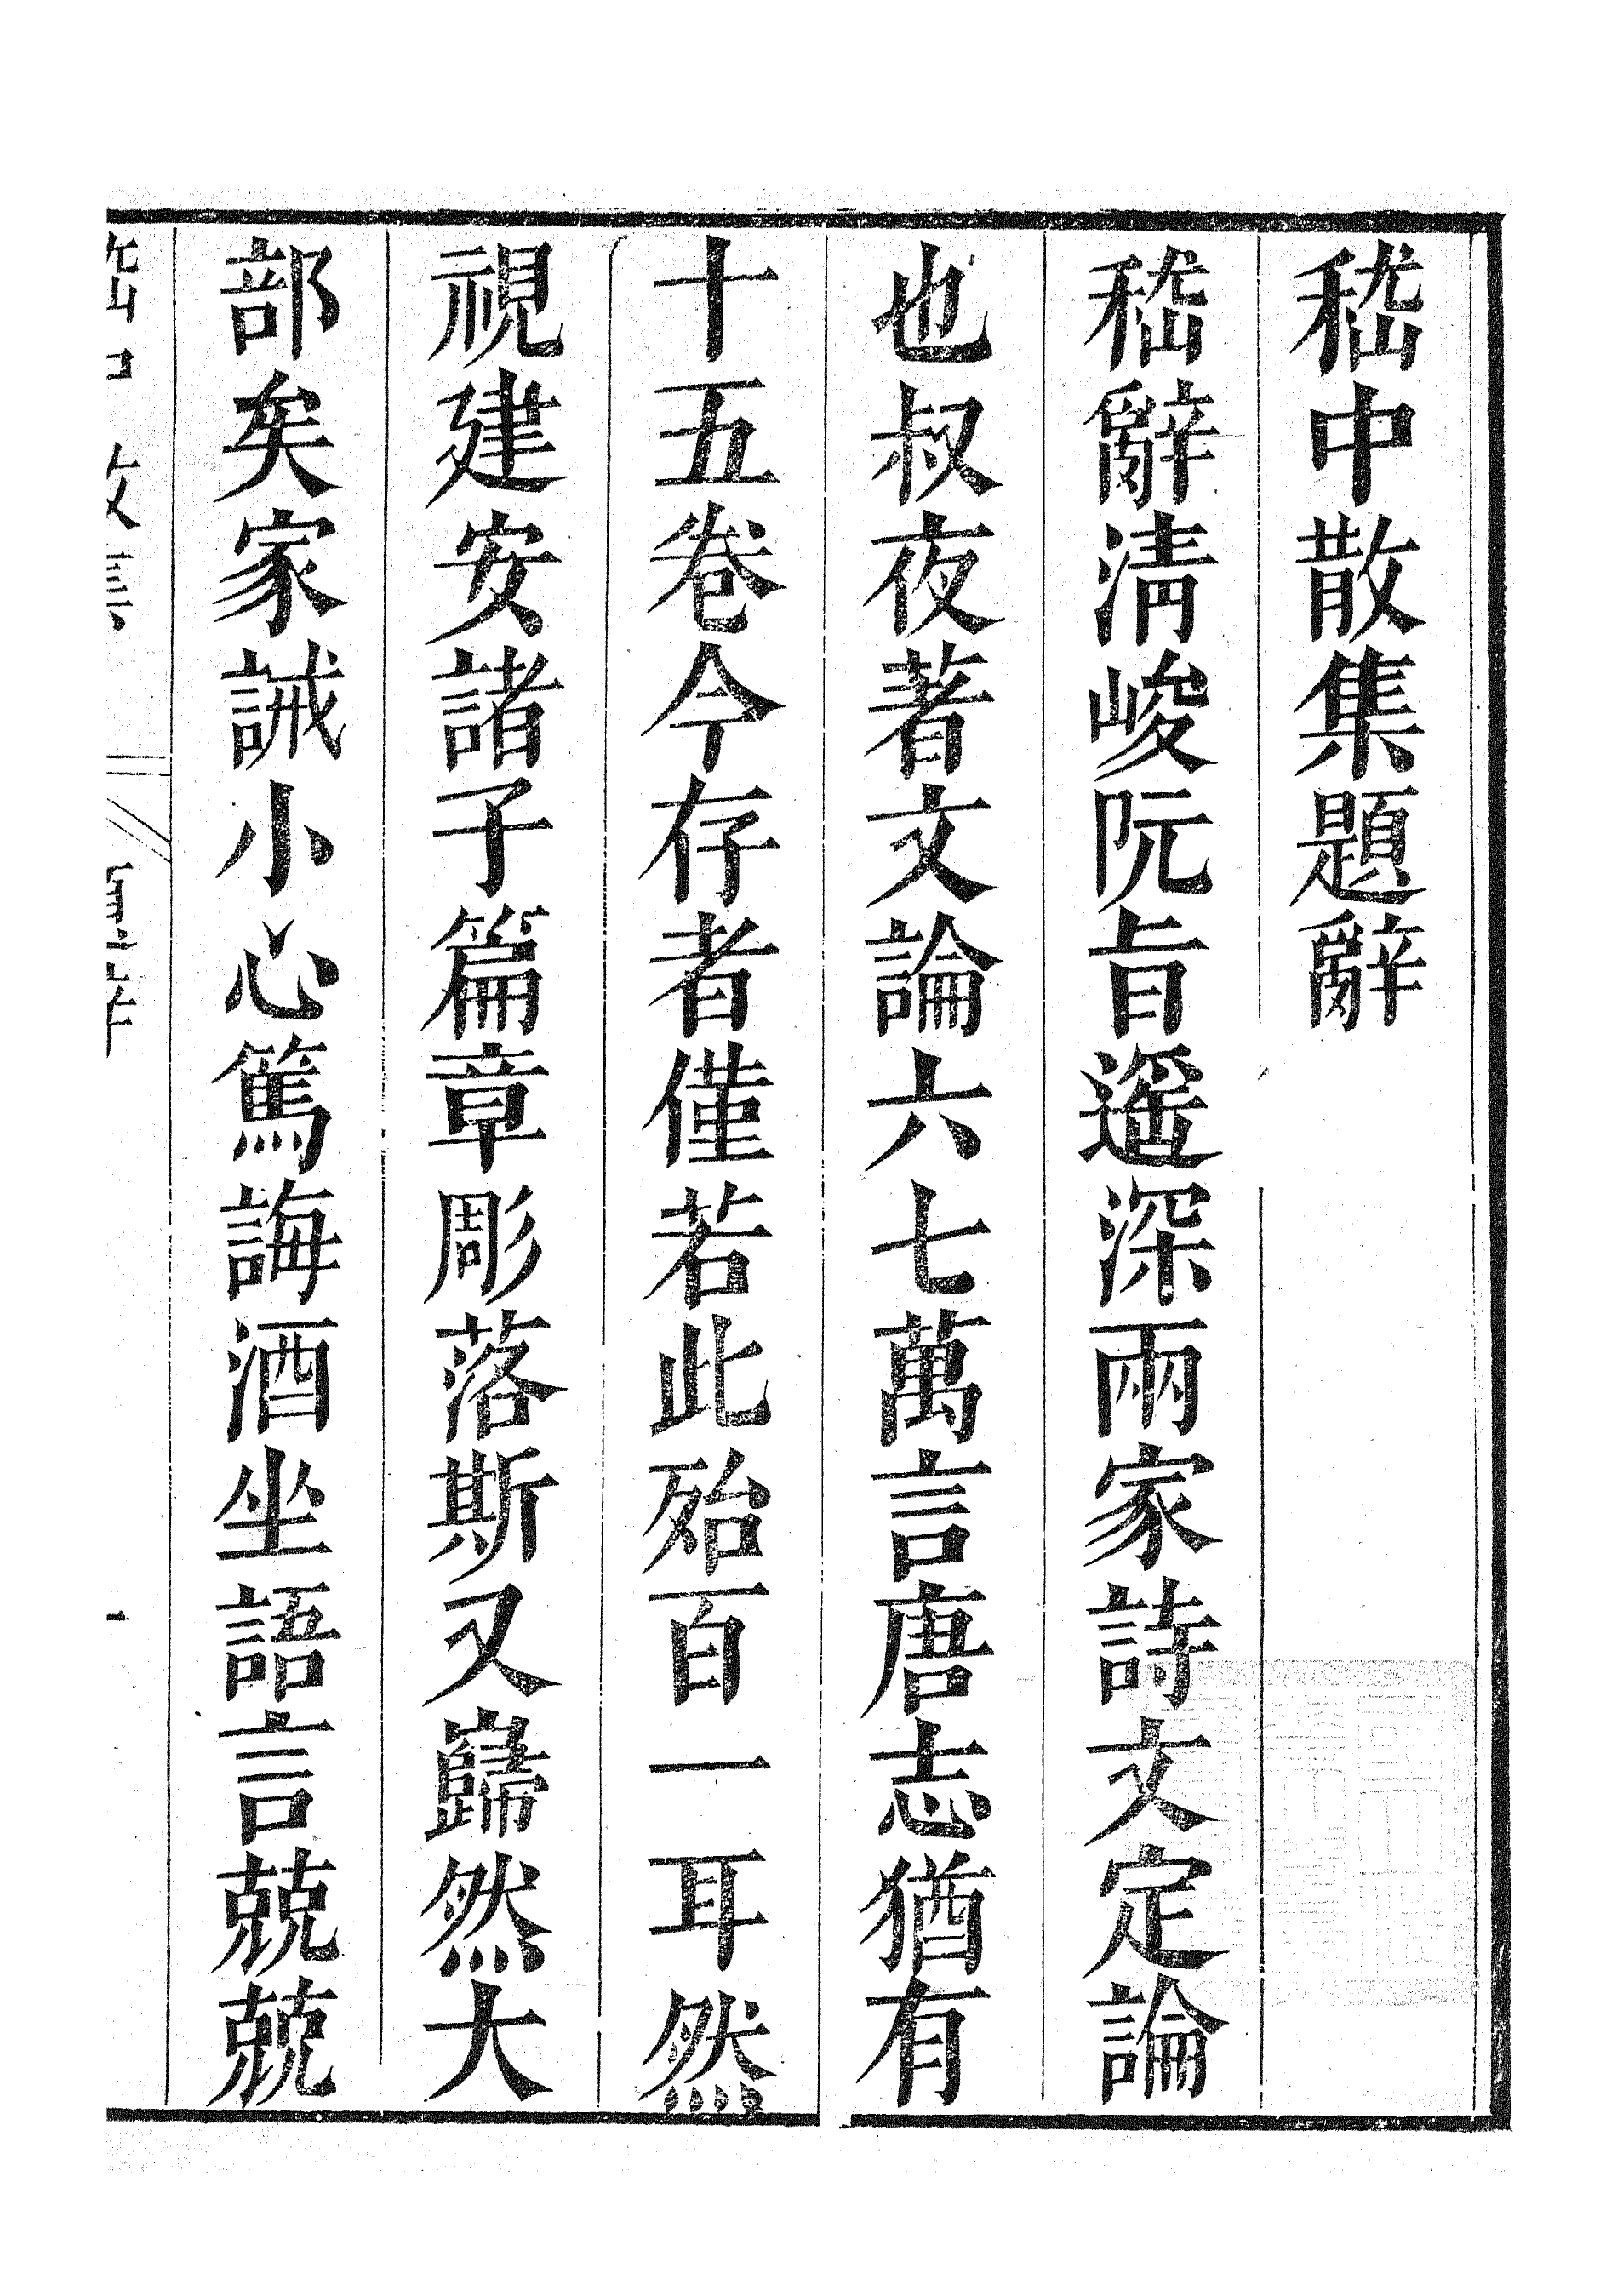 嵇中散集題辭
嵇辭淸峻阮旨遥深兩家詩文定論
也叔夜著文論六七萬言唐志猶有
十五卷今存者僅若此殆百一耳然
視建安諸子篇章彫落斯又巋然大
部矣家誡小心篤誨酒坐語言兢兢